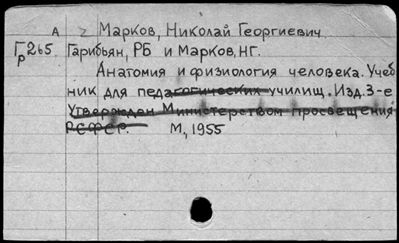 А 2 Марков, Николай Георгиевич
Гр265. Гарибьян, РБ и Марков, НГ.
Анатомия и физиология человека. Учеб
ник для педагогических училищ. Изд. 3-е
Утвержден Министерством просвещения
РСФСР. М, 1955